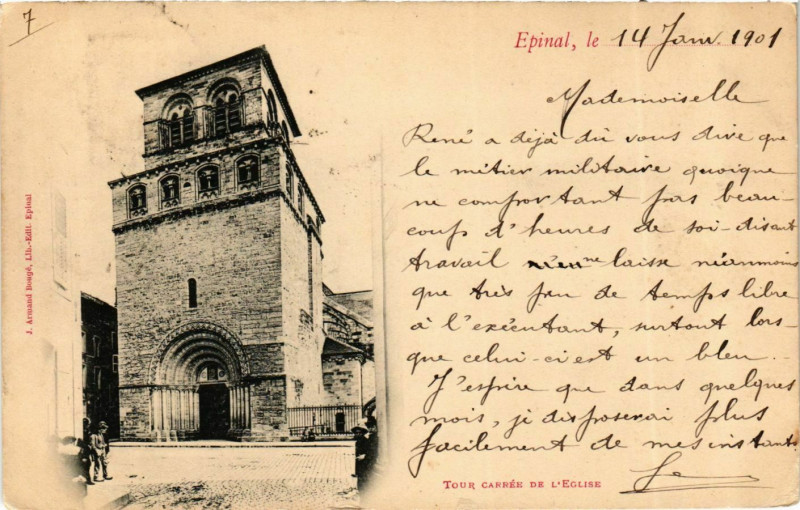 7
Epinal, le 14 Janv. 1901
Mademoiselle
René a déjà dû vous dire que
le métier militaire quoique
ne comportant pas beau-
coup d'heures de soi-disant
travail ne laisse néanmoins
que très peu de temps libre
à l'exécutant, surtout lors-
que celui-ci est un bleu.
J'espère que dans quelques
mois, je disposerai plus
facilement de mes instants.
TOUR CARRÉE DE L'EGLISE
J. Armand Bougé, Lib.-Edit. Epinal